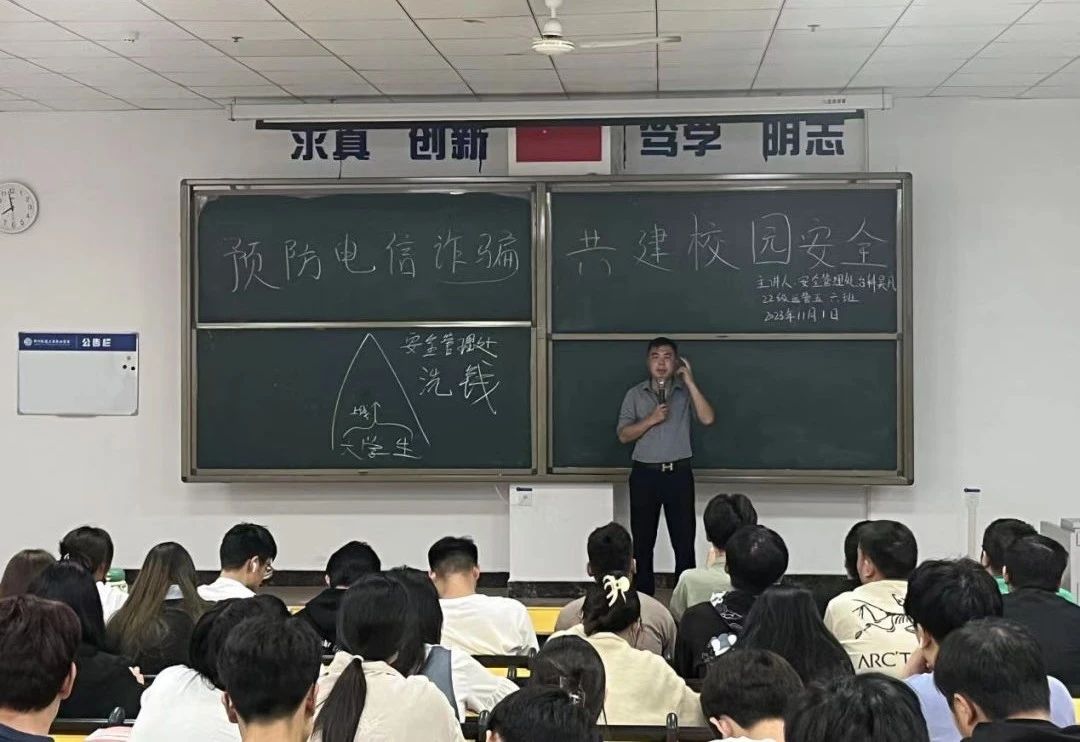 求真 创新 笃学 明志
预防电信诈骗
共建校园安全
主讲人:安全管理处
22级运营五、六班
2023年11月1日
公告栏
安全管理处
洗钱
大学生
ARC'T